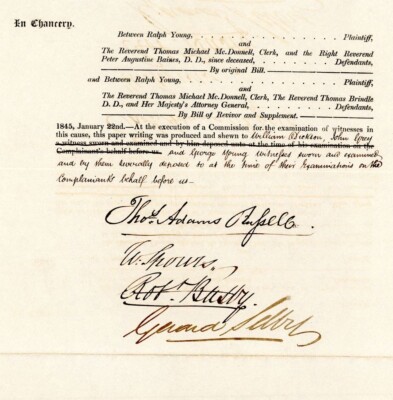 In Chancery.
Between Ralph Young, . . . . . . . . . . Plaintiff,
and
The Reverend Thomas Michael McDonnell, Clerk, and the Right Reverend
Peter Augustine Baines, D. D., since deceased, . . . . . Defendants,
By original Bill.
and Between Ralph Young, . . . . . . . . . . Plaintiff,
and
The Reverend Thomas Michael McDonnell, Clerk, The Reverend Thomas Brindle
D. D., and Her Majesty's Attorney General, . . . . . Defendants,
By Bill of Revivor and Supplement.
1845, January 22nd.—At the execution of a Commission for the examination of witnesses in
this cause, this paper writing was produced and shewn to William John
a witness sworn and examined and by him deposed unto at the time of his examination on the
Complainant's behalf before us. and George Young witnesses sworn and examined
and by them severally deposed to at the time of their Examinations on the
Complainant's behalf before us—
Thos. Adams Russell.
W. Spours.
Robt. Busby.
Gerard